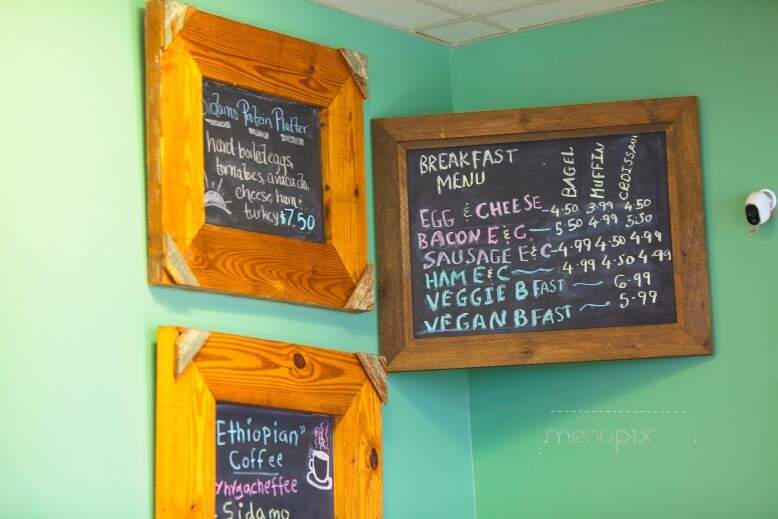 Sidamo Protein Platter
hard-boiled eggs,
tomatoes, avacado,
cheese, ham &
turkey $7.50
Ethiopian
Coffee
Yhrgacheffee
Sidamo
BREAKFAST
MENU
BAGEL MUFFIN CROISSAN
EGG & CHEESE 4.50 3.99 4.50
BACON E & C 5.50 4.99 5.50
SAUSAGE E & C 4.99 4.50 4.99
HAM E & C 4.99 4.50 4.99
VEGGIE B FAST 6.99
VEGAN B FAST 5.99
menupix